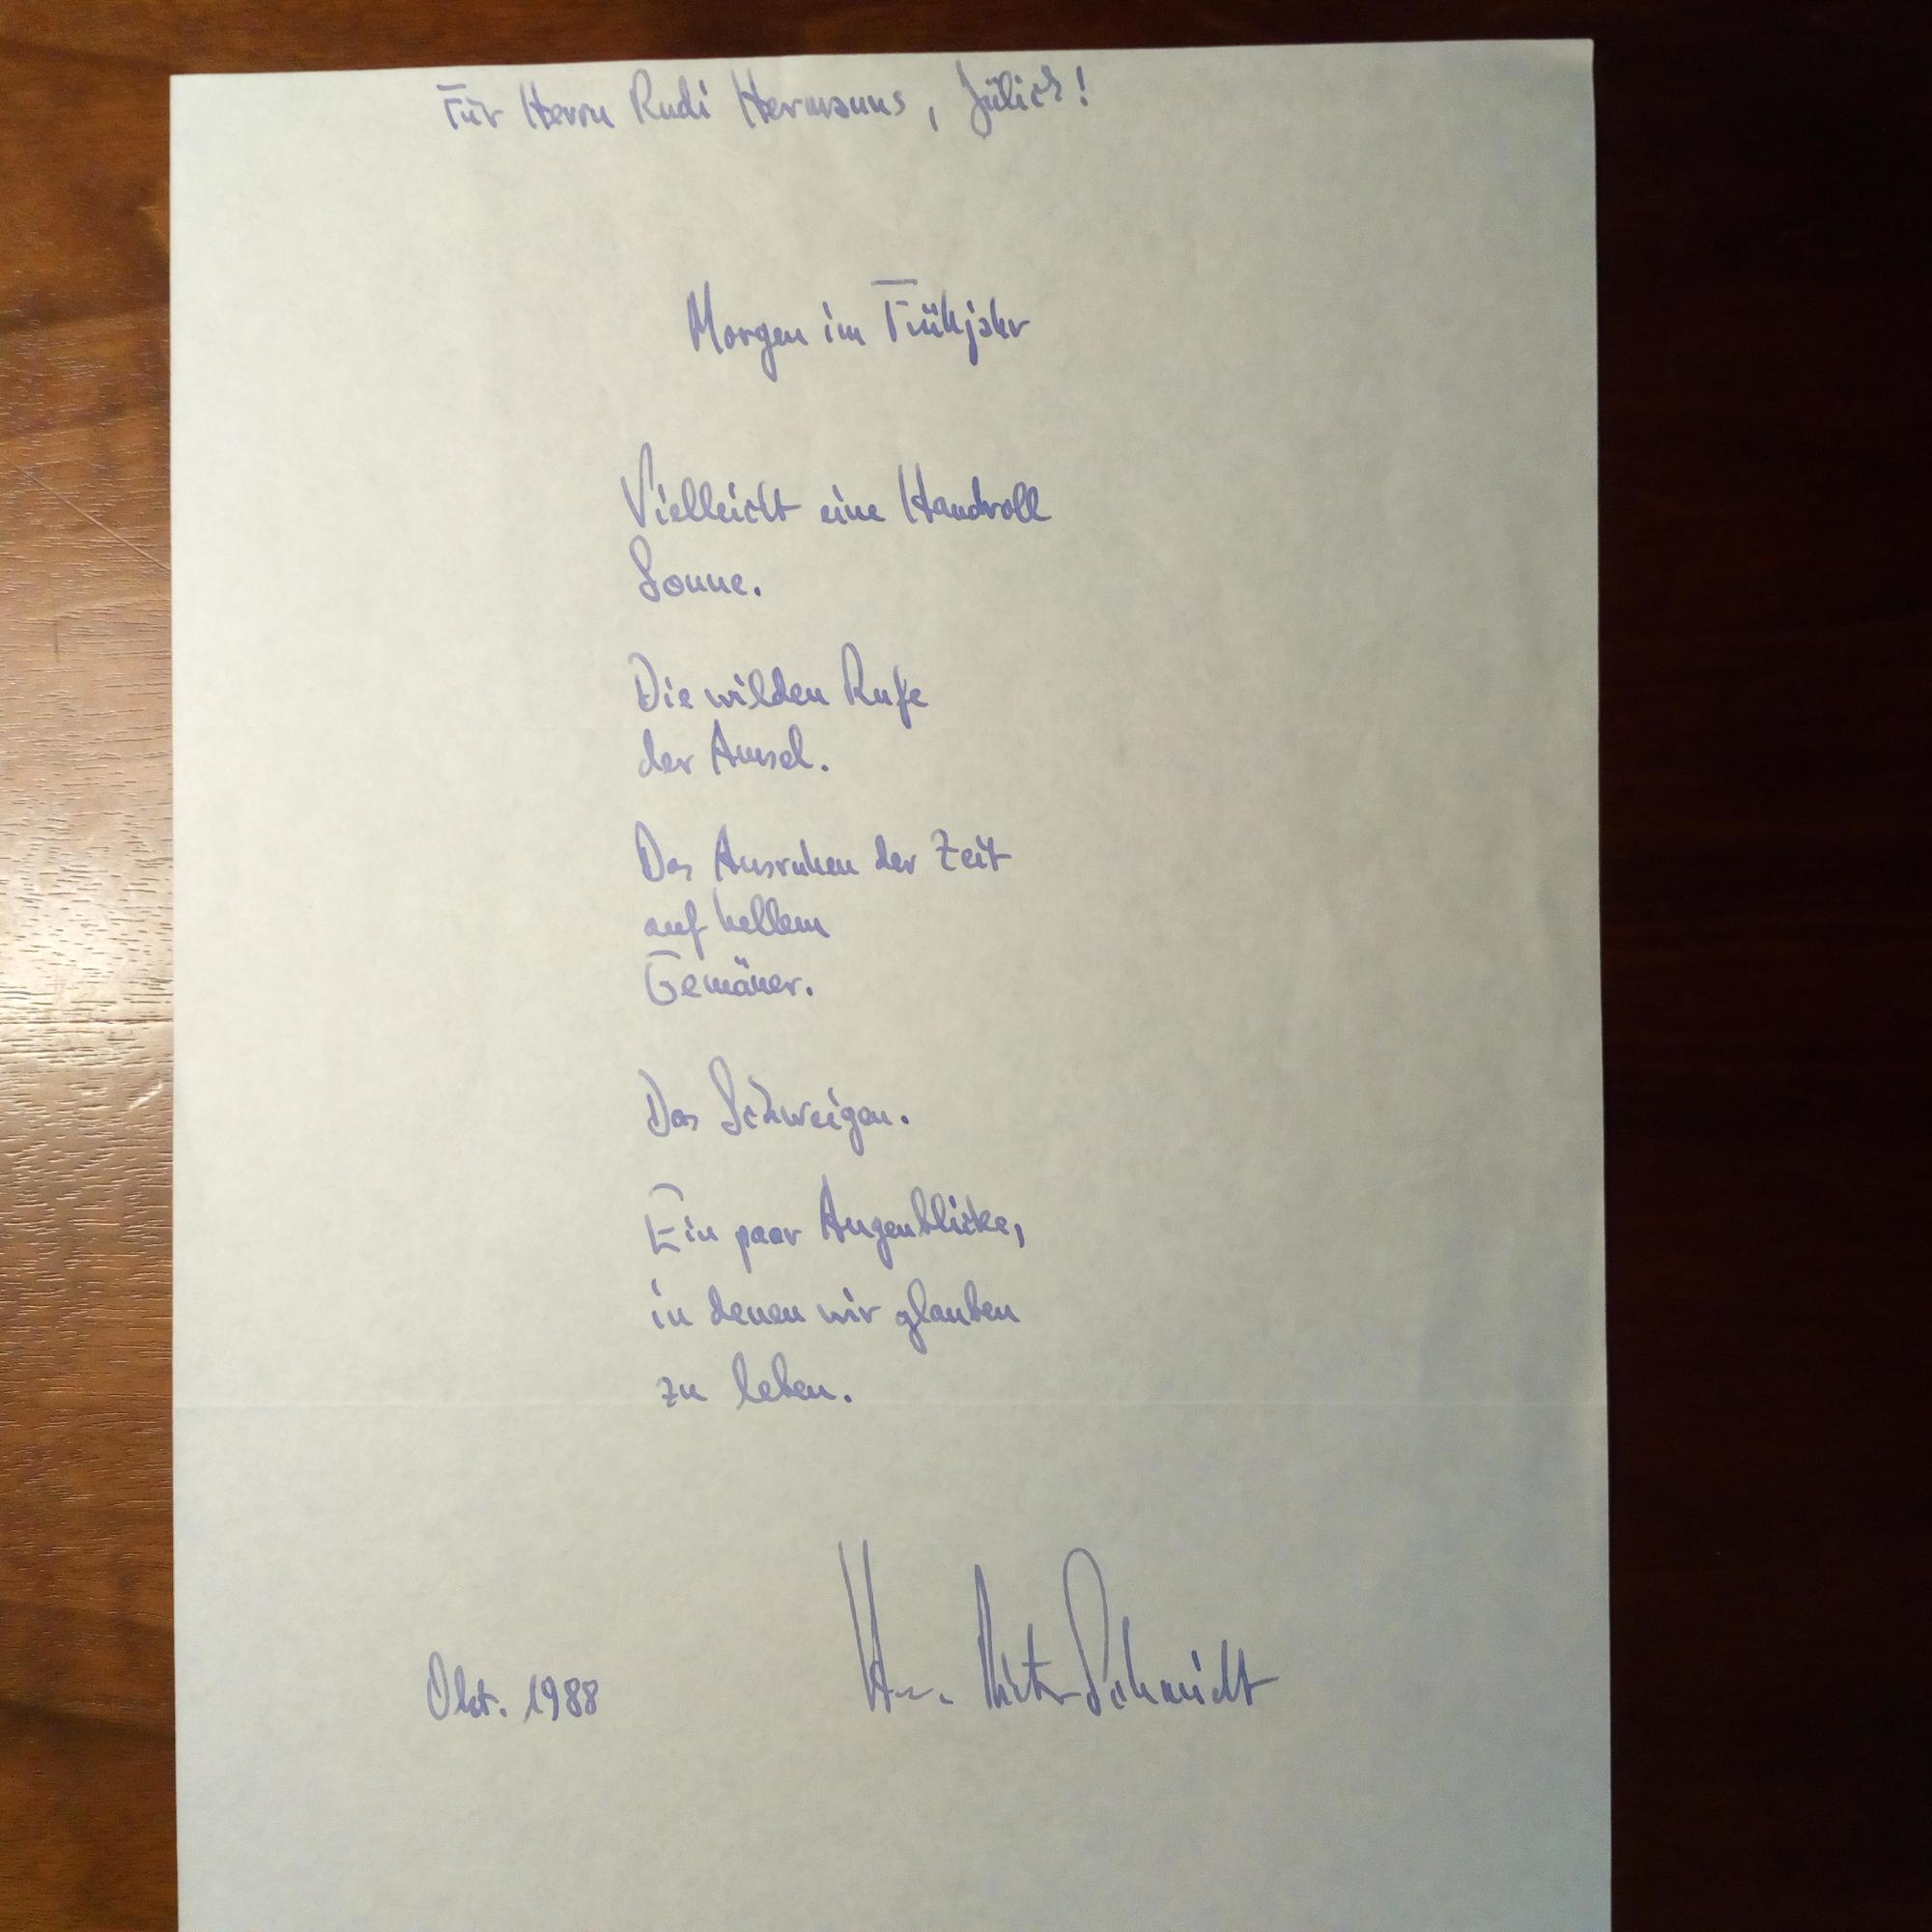 Für Herrn Rudi Hermanns, Jülich!
Morgen im Frühjahr
Vielleicht eine Handvoll
Sonne.
Die wilden Rufe
der Amsel.
Das Ausruhen der Zeit
auf hellem
Gemäuer.
Das Schweigen.
Ein paar Augenblicke,
in denen wir glauben
zu leben.
Okt. 1988
Schmidt